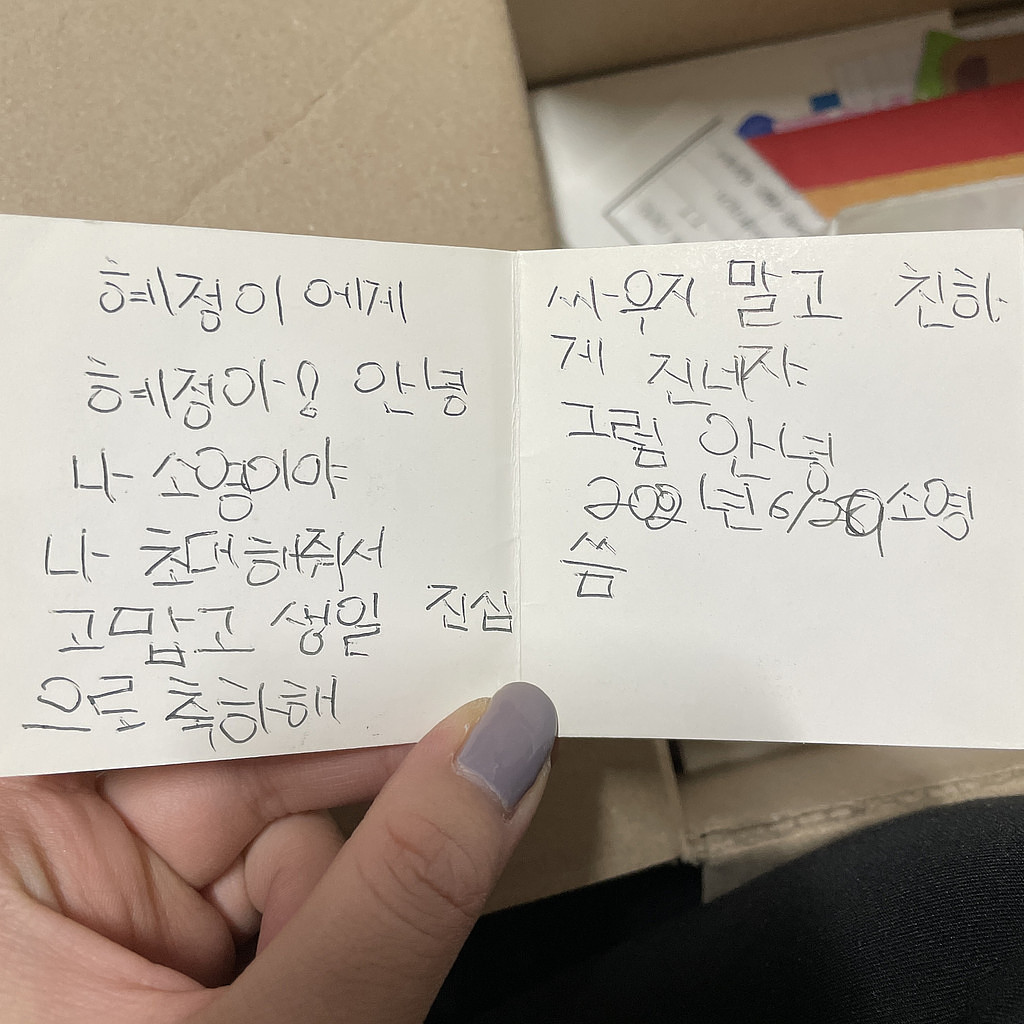 혜정이 에게
혜정아! 안녕
나 소영이야
나 초대해줘서
고맙고 생일 진심
으로 축하해
싸우지 말고 친하
게 진네자
그럼 안녕
2002년 6/29 소영
씀